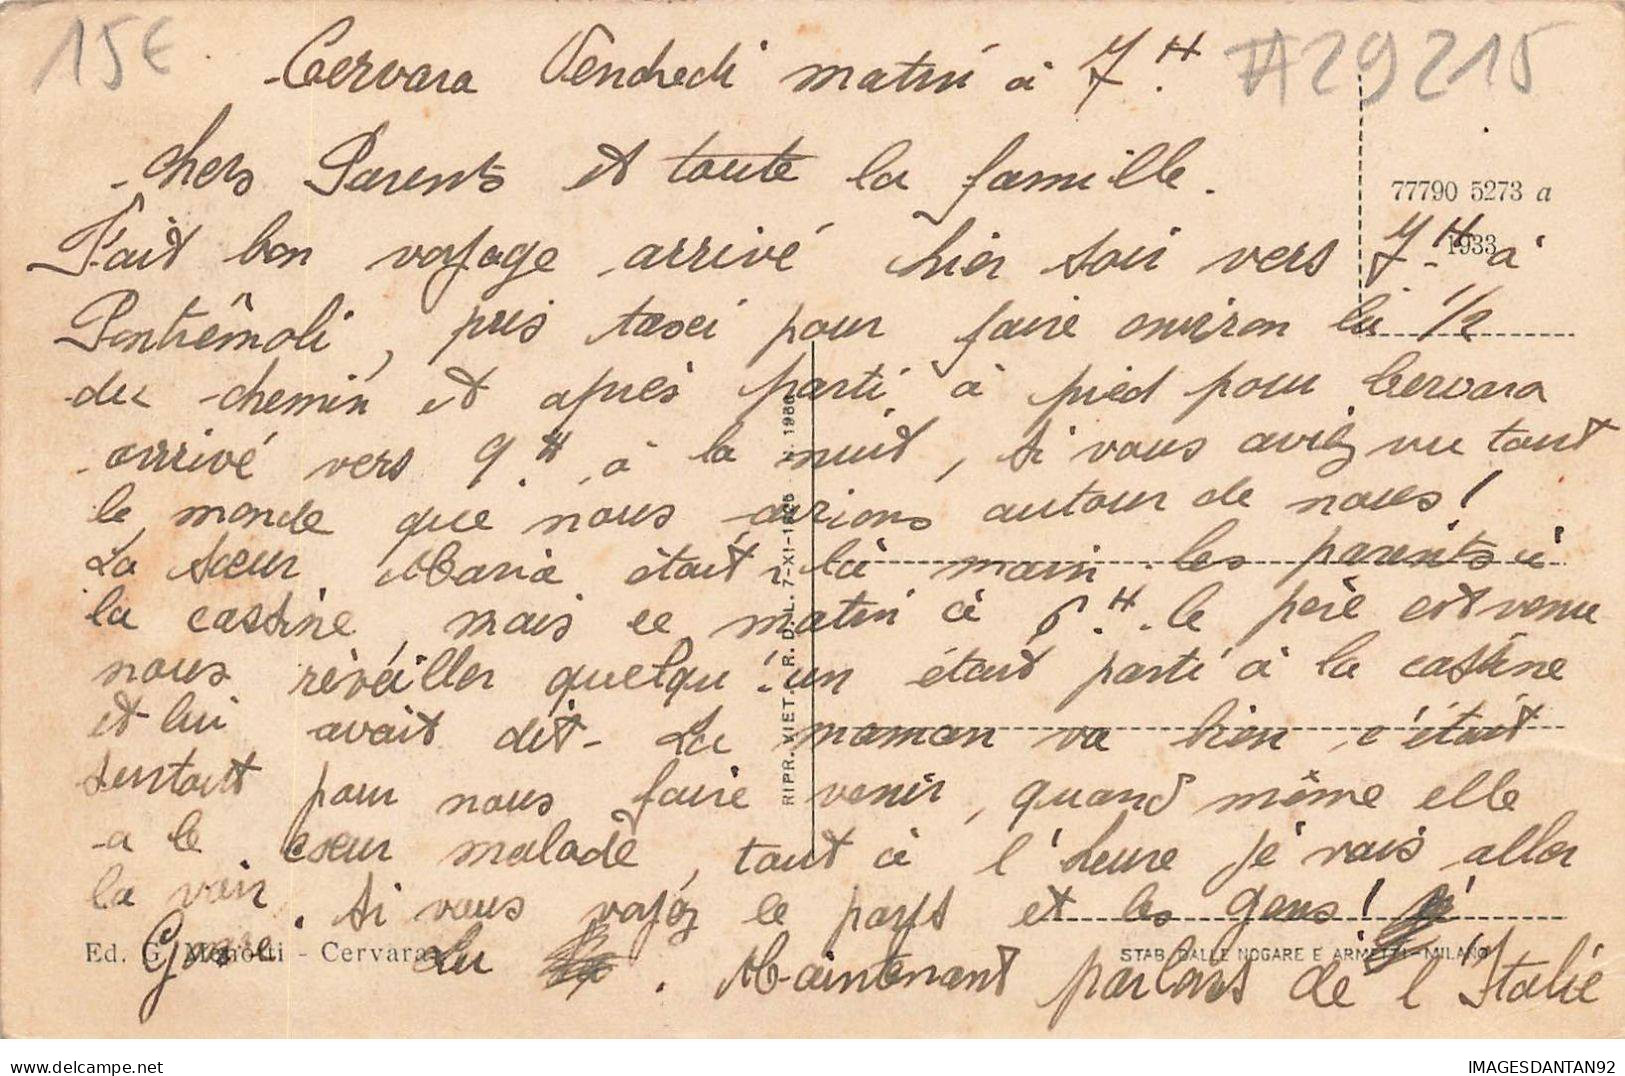 15€
#29215
Cervara Vendredi matin à 7.H
chers Parents et toute la famille.
77790 5273 a
1933
Fait bon voyage arrivé hier soir vers 7.H à
Pontrêmoli, pris taxi pour faire environ la 1/2
du chemin et après parti à pied pour Cervara
arrivé vers 9.H à la nuit, si vous aviez vu tout
le monde que nous avions autour de nous!
La sœur Maria était là main les parents à
la cassine, mais ce matin à 6.H. le père est venu
nous réveiller quelqu'un était parti à la cassine
et lui avait dit - La maman va bien c'était
surtout pour nous faire venir, quand même elle
a le cœur malade, tout à l'heure je vais aller
la voir. Si vous voyez le pays et les gens!
du . Maintenant parlons de l'Italie
Ed. G. Menotti - Cervara
STAB. DALLE NOGARE E ARMETTI - MILANO
RIPR. VIET. R. D. L. 7-XI-1925
IMAGESDANTAN92